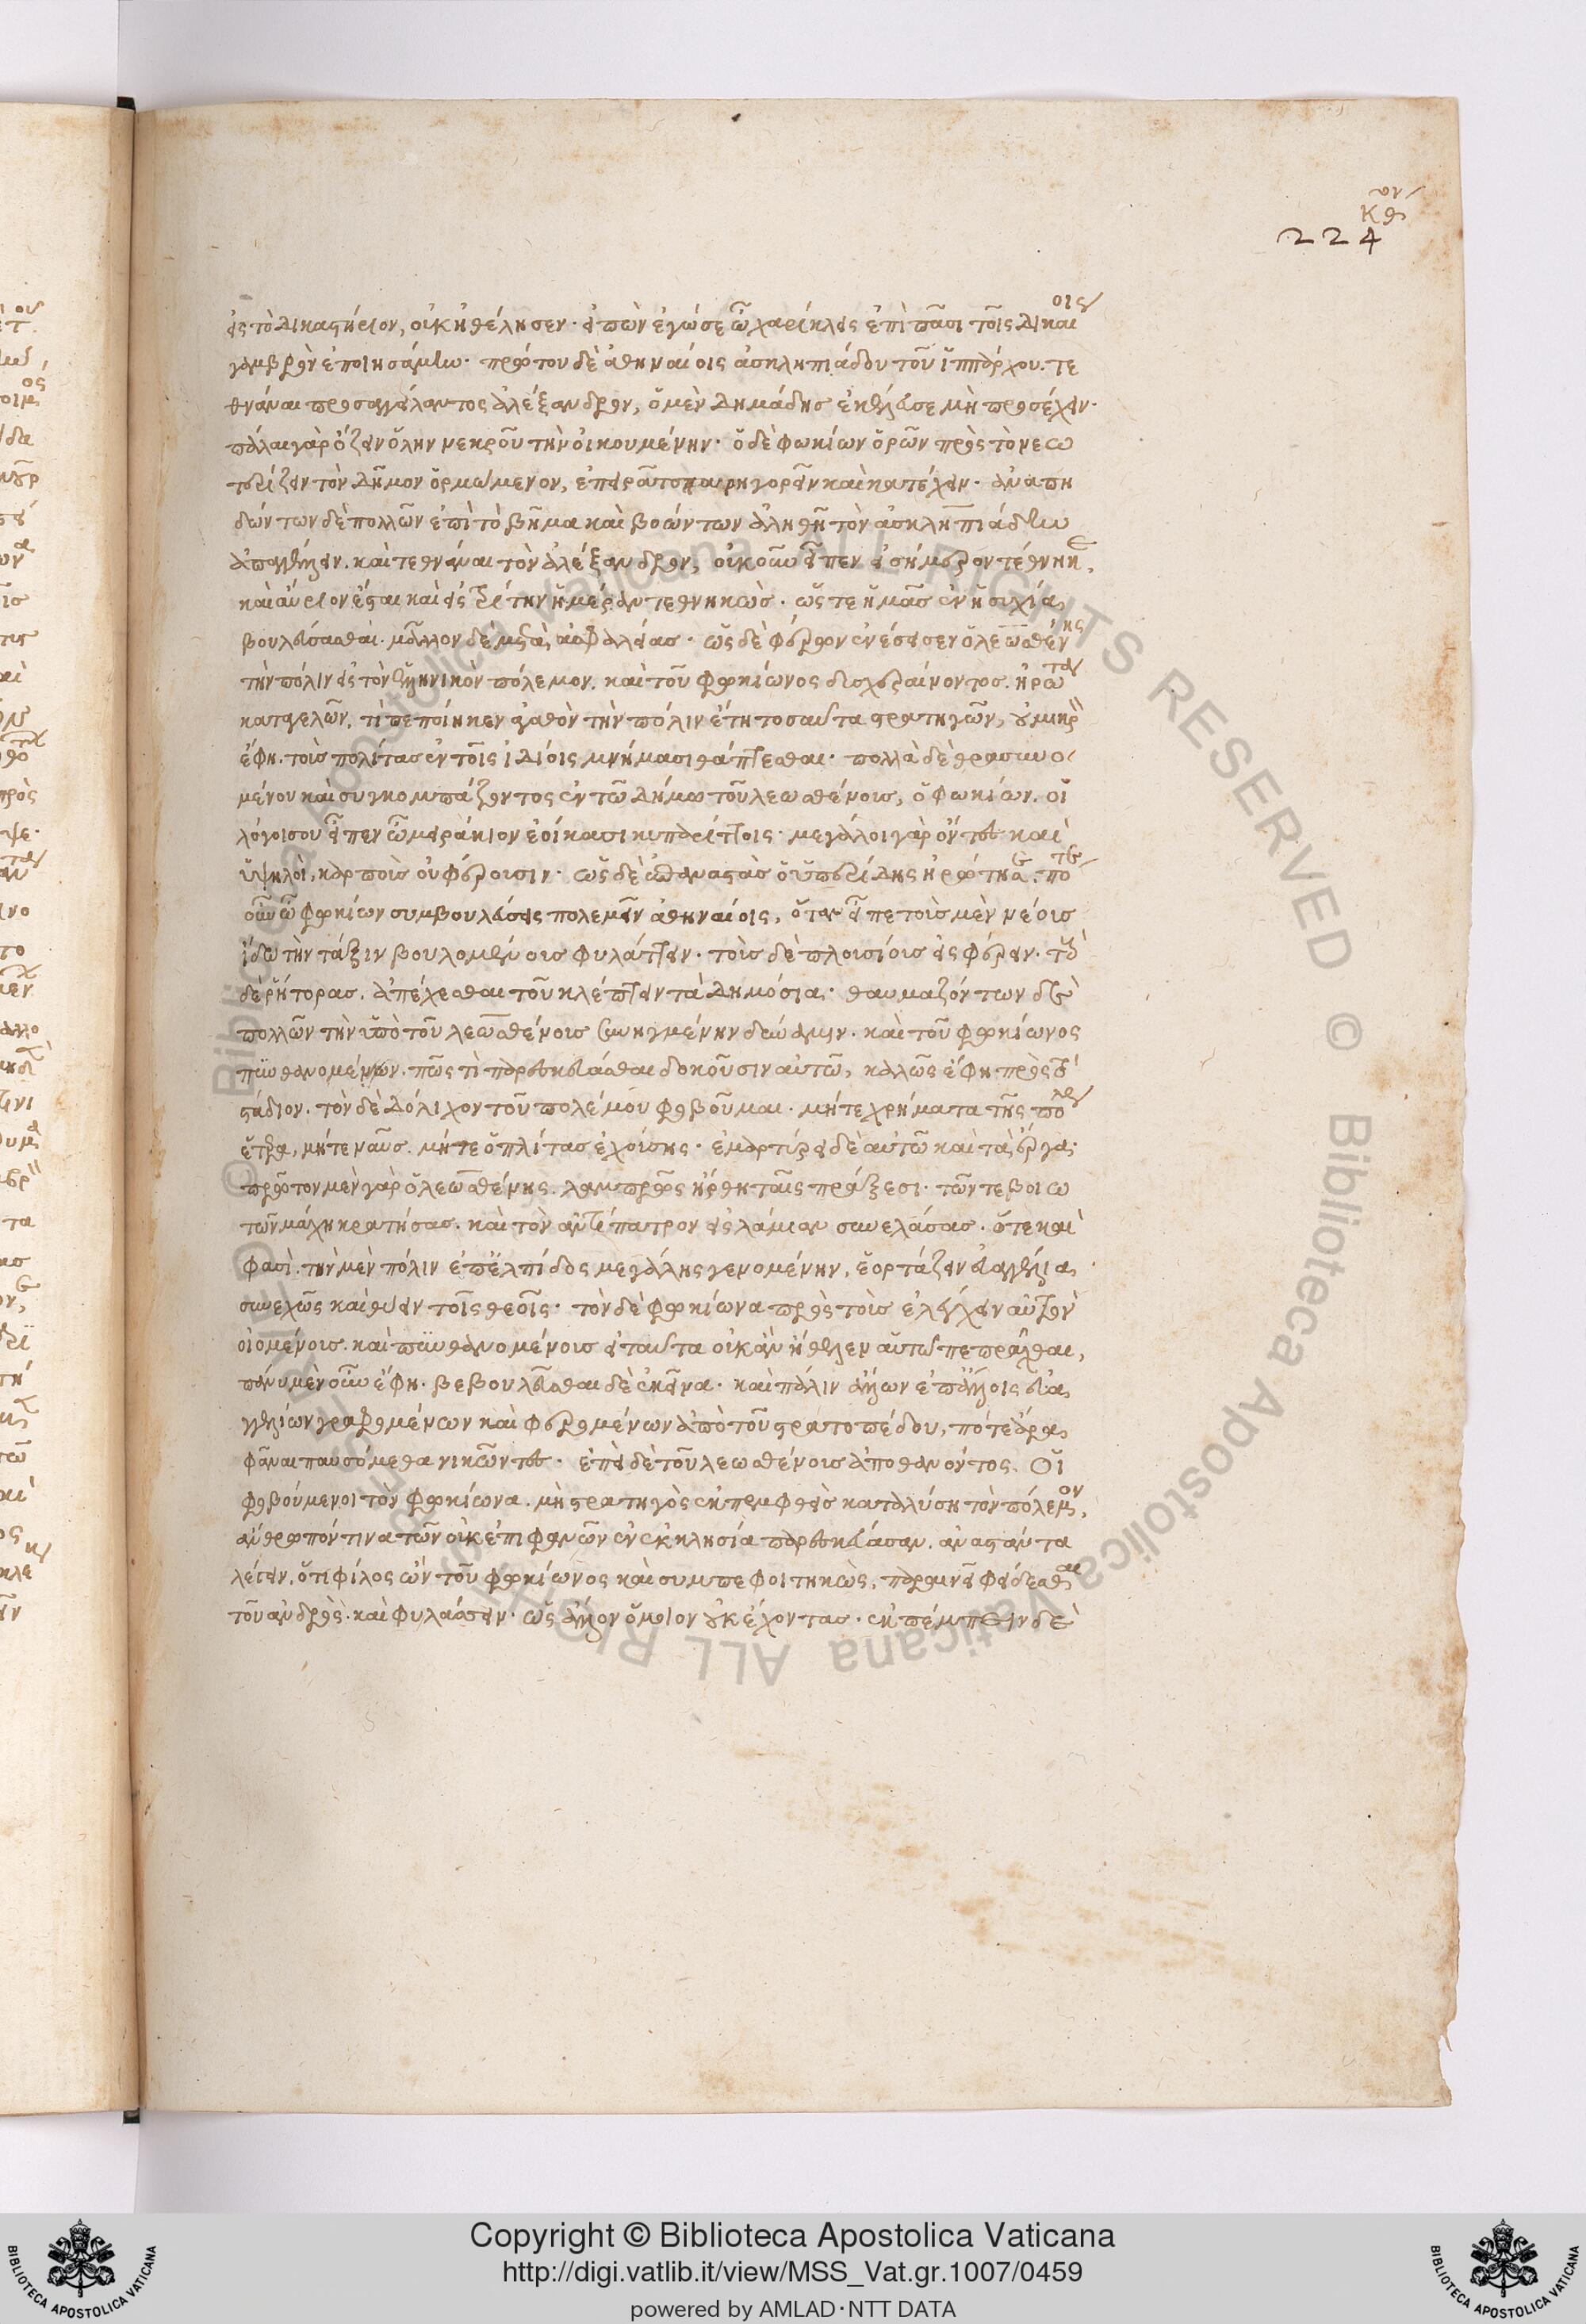 ον
κθ
224
εἰς τὸ δικαστήριον, οὐκ ἠθέλησεν· εἰπὼν ἐγώ σε ὦ χαρίκλες ἐπὶ πᾶσι τοῖς δικαίοις
γαμβρὸν ἐποιησάμην· πρώτου δὲ ἀθηναίοις ἀσκληπιάδου τοῦ ἱππάρχου. τε
θνάναι προσαγγείλαντος ἀλέξανδρον, ὁ μὲν δημάδης ἐκέλευσε μὴ προσέχειν·
πάλαι γὰρ ὄζειν ὅλην νεκροῦ τὴν οἰκουμένην· ὁ δὲ φωκίων ὁρῶν πρὸς τὸ νεω
τερίζειν τὸν δῆμον ὁρμώμενον, ἐπειρᾶτο παρηγορεῖν καὶ κατέχειν· ἀναπη
δώντων δὲ πολλῶν ἐπὶ τὸ βῆμα καὶ βοώντων ἀληθῆ τὸν ἀσκληπιάδην
ἀπαγγέλλειν. καὶ τεθνάναι τὸν ἀλέξανδρον, οὐκοῦν εἶπεν εἰ σήμερον τέθνηκε,
καὶ αὔριον ἔσται καὶ εἰς τρίτην ἡμέραν τεθνηκὼς· ὥστε ἡμᾶς ἐν ἡσυχία
βουλεύσασθαι· μᾶλλον δὲ μετὰ ἀσφαλείας· ὡς δὲ φέρων ἐνέσεισεν ὁ λεωσθένης
τὴν πόλιν εἰς τὸν ἑλληνικὸν πόλεμον. καὶ τοῦ φωκίωνος δυσχεραίνοντος. ἠρώτα
καταγελῶν, τί πεποίηκεν ἀγαθὸν τὴν πόλιν ἔτη τοσαῦτα στρατηγῶν, οὐ μικρὸν
ἔφη. τοὺς πολίτας ἐν τοῖς ἰδίοις μνήμασι θάπτεσθαι· πολλὰ δὲ θρασυνο
μένου καὶ συγκομπάζοντος ἐν τῶ δήμω τοῦ λεωσθένους, ὁ φωκίων. οἱ
λόγοι σου εἶπεν ὦ μειράκιον ἐοίκασι κυπαρίττοις· μεγάλοι γὰρ ὄντες καὶ
ὑψηλοὶ, καρποὺς οὐ φέρουσιν· ὡς δὲ ἐπαναστὰς ὁ ὑπερίδης ἠρώτησε. πότε
οὖν ὦ φωκίων συμβουλεύσεις πολεμεῖν ἀθηναίοις, ὅταν εἶπε τοὺς μὲν νέους
ἴδω τὴν τάξιν βουλομένους φυλάττειν· τοὺς δὲ πλουσίους εἰσφέρειν· τοὺς
δὲ ῥήτορας. ἀπέχεσθαι τοῦ κλέπτειν τὰ δημόσια· θαυμαζόντων δὲ
πολλῶν τὴν ὑπὸ τοῦ λεωσθένους συνηγμένην δύναμιν. καὶ τοῦ φωκίωνος
πυνθανομένων. πῶς τὶ παρεσκευάσθαι δοκοῦσιν αὐτῶ, καλῶς ἔφη πρὸς τὸ
στάδιον. τὸν δὲ δόλιχον τοῦ πολέμου φοβοῦμαι. μήτε χρήματα τῆς πόλεως
ἕτερα, μήτε ναῦς. μήτε ὁπλίτας ἐχούσης· ἐμαρτύρει δὲ αὐτῶ καὶ τὰ ἔργα·
πρῶτον μὲν γὰρ ὁ λεωσθένης. λαμπρὸς ἤρθη ταῖς πράξεσι. τῶν τε βοιω
τῶν μάχη κρατήσας. καὶ τὸν ἀντίπατρον εἰς λάμιαν συνελάσας. ὅτε καὶ
φασὶ. τὴν μὲν πόλιν ἐπ' ἐλπίδος μεγάλης γενομένην, ἑορτάζειν εὐαγγέλια
συνεχῶς καὶ θύειν τοῖς θεοῖς· τὸν δὲ φωκίωνα πρὸς τοὺς ἐλέγχειν αὐτὸν
οἰομένους. καὶ πυνθανομένους εἰ ταῦτα οὐκ ἂν ἤθελεν αὑτῶ πεπρᾶχθαι,
πάνυ μὲν οὖν ἔφη. βεβουλεῦσθαι δὲ ἐκεῖνα. καὶ πάλιν ἄλλων ἐπ' ἄλλοις εὐα
γγελίων γραφομένων καὶ φερομένων ἀπὸ τοῦ στρατοπέδου, πότε ἄρα
φᾶναι παυσόμεθα νικῶντες. ἐπεὶ δὲ τοῦ λεωσθένους ἀποθανόντος. οἱ
φοβούμενοι τὸν φωκίωνα. μὴ στρατηγὸς ἐκπεμφθεὶς καταλύση τὸν πόλεμον,
ἄνθρωπόν τινα τῶν οὐκ ἐπιφανῶν ἐν ἐκκλησία παρεσκεύασαν. ἀναστάντα
λέγειν, ὅτι φίλος ὢν τοῦ φωκίωνος καὶ συμπεφοιτηκὼς, παραινεῖ φείδεσθαι
τοῦ ἀνδρὸς. καὶ φυλάσσειν. ὡς ἄλλον ὅμοιον οὐκ ἔχοντας. ἐκπέμπειν δὲ
Copyright © Biblioteca Apostolica Vaticana
http://digi.vatlib.it/view/MSS_Vat.gr.1007/0459
powered by AMLAD·NTT DATA